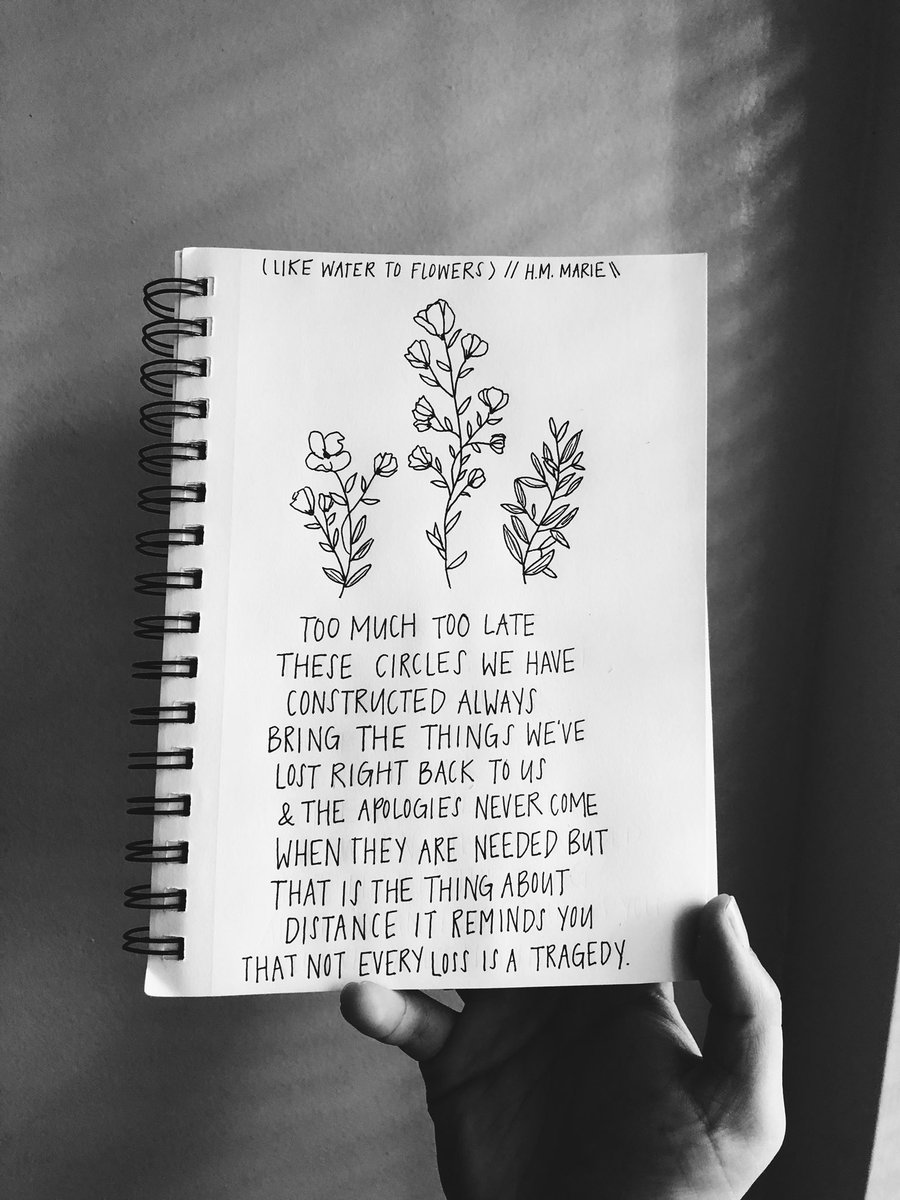 (LIKE WATER TO FLOWERS) // H.M. MARIE \\
TOO MUCH TOO LATE
THESE CIRCLES WE HAVE
CONSTRUCTED ALWAYS
BRING THE THINGS WE'VE
LOST RIGHT BACK TO US
& THE APOLOGIES NEVER COME
WHEN THEY ARE NEEDED BUT
THAT IS THE THING ABOUT
DISTANCE IT REMINDS YOU
THAT NOT EVERY LOSS IS A TRAGEDY.